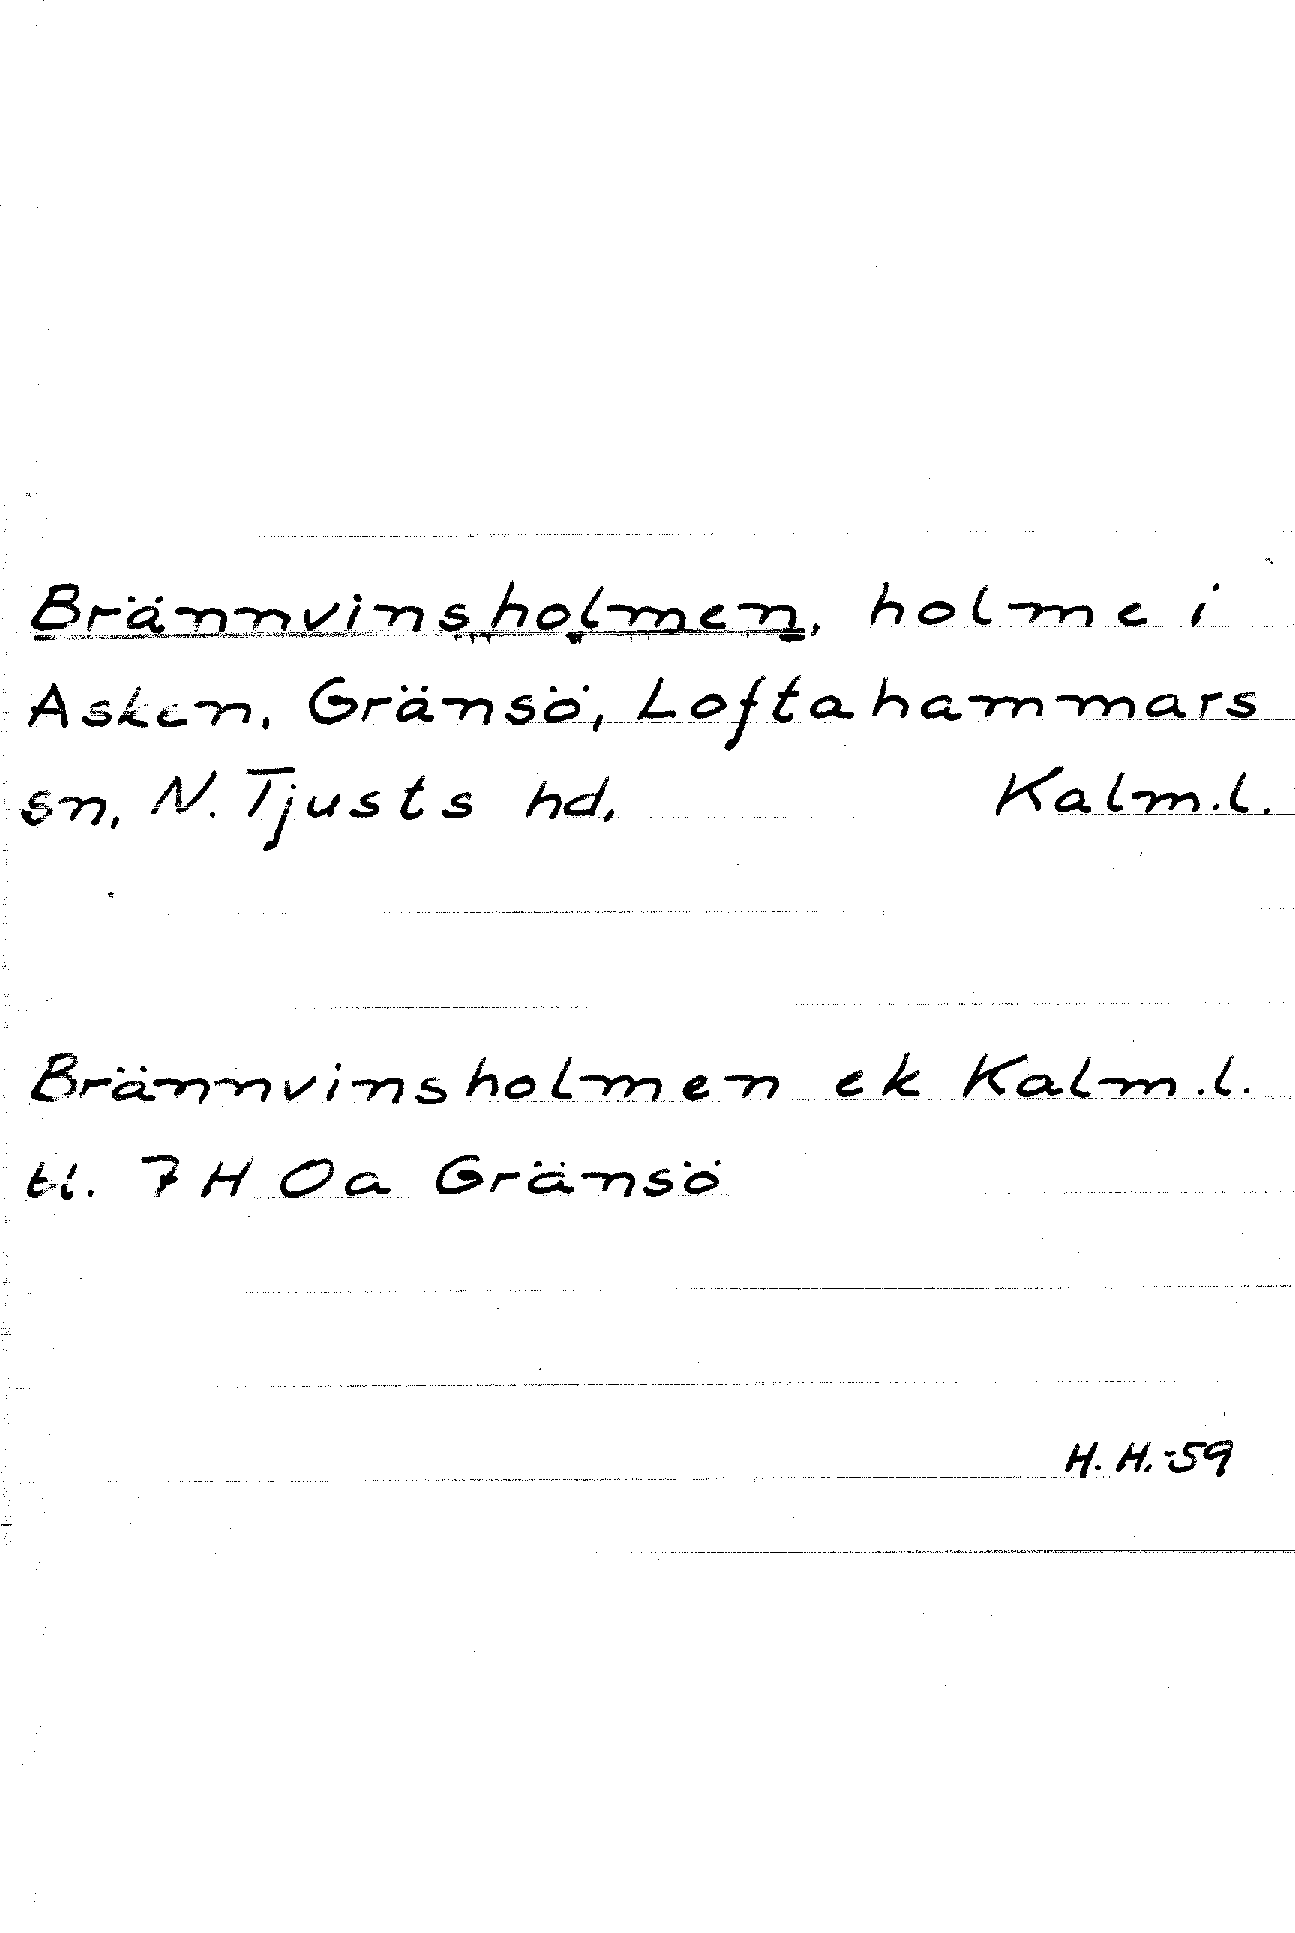 Brännvinsholmen, holme i
Asken, Gränsö, Loftahammars
sn, N. Tjusts hd, Kalm.l.
Brännvinsholmen ek Kalm.l.
bl. 7 H Oa Gränsö
H. H. -59